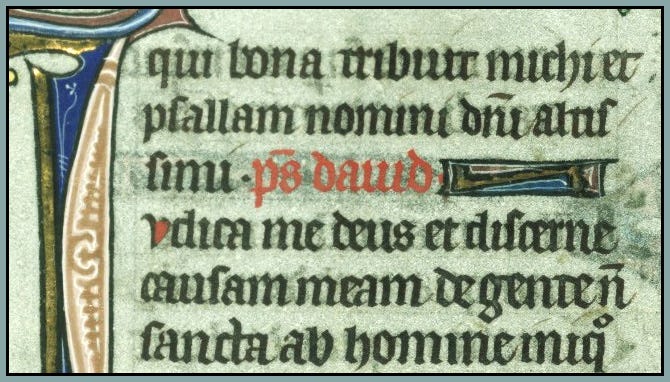 qui bona tribuit michi et
psallam nomini dn̄i altis
simi · ps̄ dauid ·
vdica me deus et discerne
causam meam de gente n̄
sancta ab homine iniqͦ